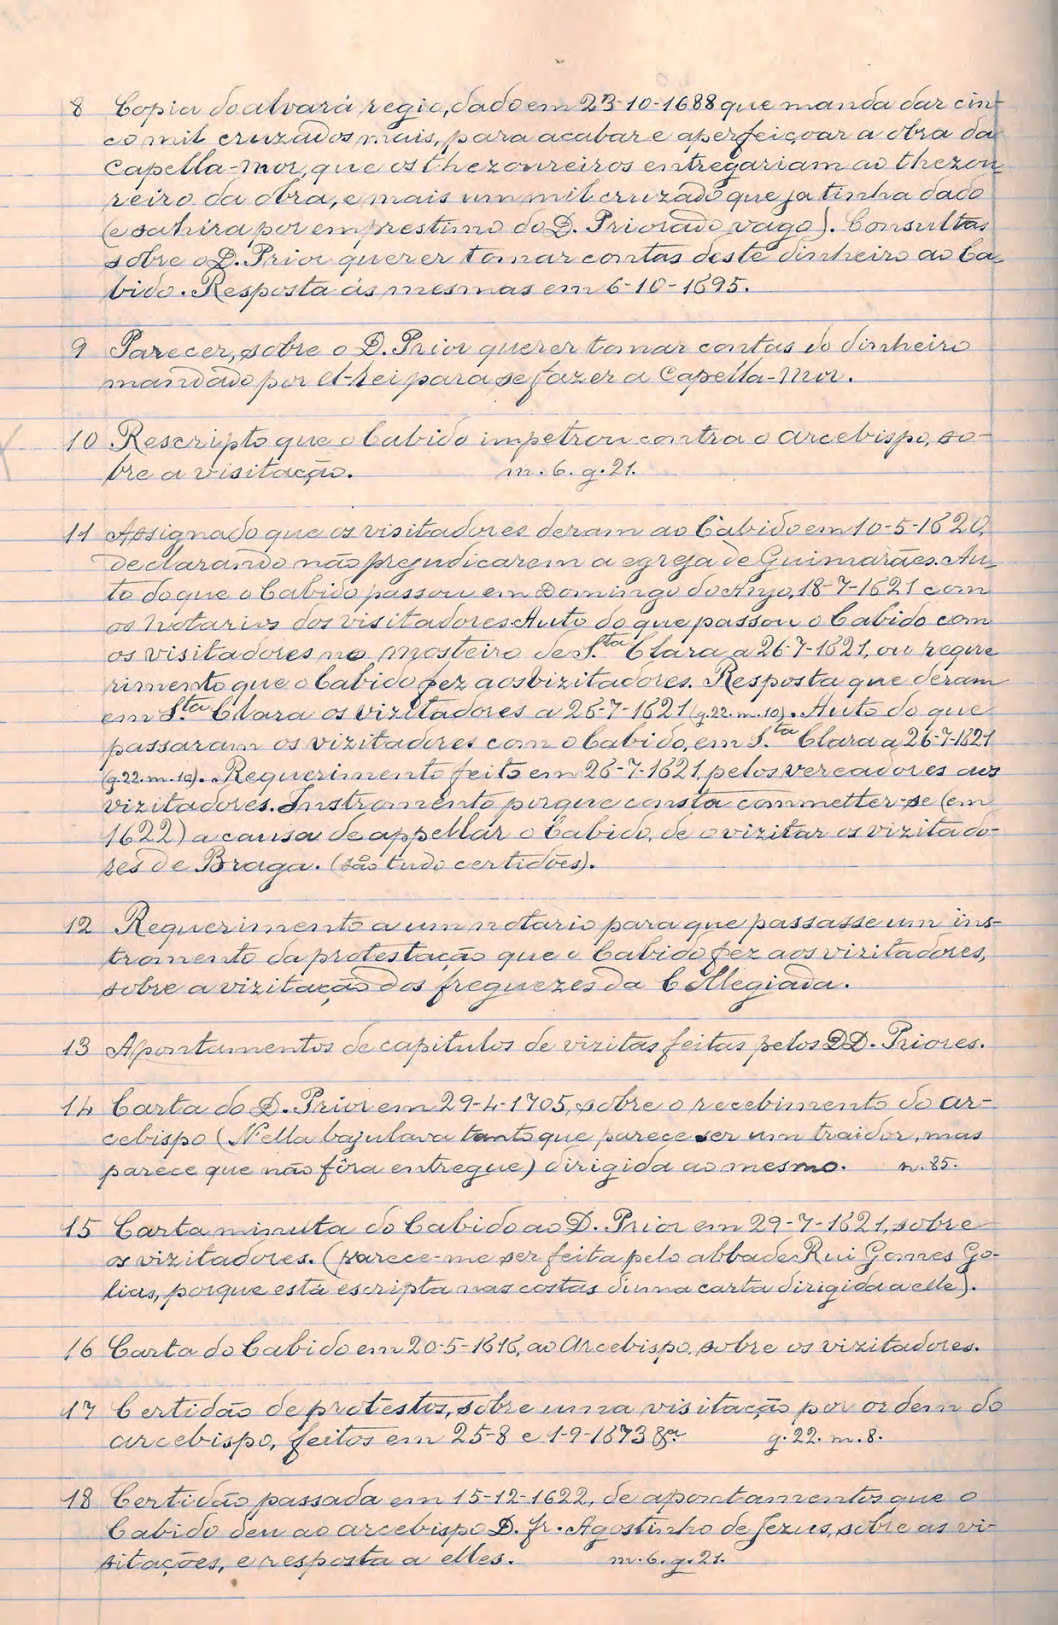 8 Copia do alvará regio, dado em 23-10-1688 que manda dar cin-
co mil cruzados mais, para acabar e aperfeiçoar a obra da
Capella-Mor, que os thezoureiros entregariam ao thezou-
reiro da obra, e mais um mil cruzado que ja tinha dado
(e sahira por emprestimo do D. Priorado vago). Consultas
sobre o D. Prior querer tomar contas deste dinheiro ao Ca-
bido. Resposta ás mesmas em 6-10-1695.
9 Parecer, sobre o D. Prior querer tomar contas do dinheiro
mandado por el-rei para se fazer a Capella-Mor.
10 Rescripto que o Cabido impetrou contra o arcebispo, so-
bre a visitação. m. 6. g. 21.
11 Assignado que os visitadores deram ao Cabido em 10-5-1620,
declarando não prejudicarem a egreja de Guimarães. Au-
to do que o Cabido passou em Domingo do Anjo, 18-7-1621 com
os notarios dos visitadores. Auto do que passou o Cabido com
os visitadores no mosteiro de S.ta Clara a 26-7-1621, ou reque
rimento que o Cabido fez aos vizitadores. Resposta que deram
em S.ta Clara os vizitadores a 26-7-1621 (g. 22. m. 10). Auto do que
passaram os vizitadores com o Cabido, em S.ta Clara a 26-7-1621
(g. 22. m. 10). Requerimento feito em 26-7-1621, pelos vereadores aos
vizitadores. Instromento porque consta commetter-se (em
1622) a causa de appellar o Cabido, de o vizitar os vizitado-
res de Braga. (são tudo certidões).
12 Requerimento a um notario para que passasse um ins-
tromento da protestação que o Cabido fez aos vizitadores,
sobre a vizitação dos freguezes da Collegiada.
13 Apontamentos de capitulos de vizitas feitas pelos DD. Priores.
14 Carta do D. Prior em 29-4-1705, sobre o recebimento do ar-
cebispo (N'ella bajulava tanto que parece ser um traidor, mas
parece que não fôra entregue) dirigida ao mesmo. n. 85.
15 Carta minuta do Cabido ao D. Prior em 29-7-1621, sobre
os vizitadores. (parece-me ser feita pelo abbade Rui Gomes Go-
lias, porque está escripta nas costas d'uma carta dirigida a elle).
16 Carta do Cabido em 20-5-1616, ao Arcebispo, sobre os vizitadores.
17 Certidão de protestos, sobre uma visitação por ordem do
arcebispo, feitos em 25-8 e 1-9-1673 g. 22. m. 8.
18 Certidão passada em 15-12-1622, de apontamentos que o
Cabido deu ao arcebispo D. fr. Agostinho de Jezus, sobre as vi-
sitações, e resposta a elles. m. 6. g. 21.